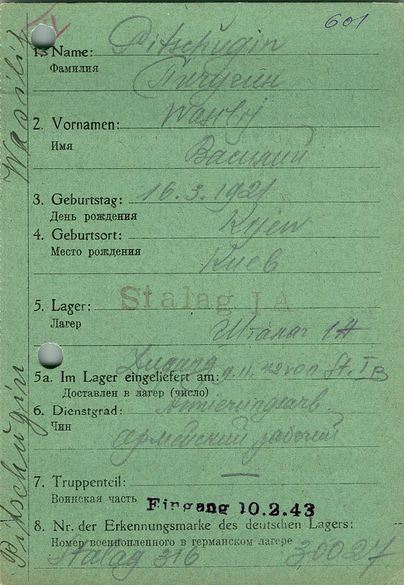 601
Wasilij
Pitschugin
1. Name: Pitschugin
Фамилия Пичугин
2. Vornamen: Wasilij
Имя Василий
3. Geburtstag: 16.3.1921
День рождения
4. Geburtsort: Kijew
Место рождения Киев
5. Lager: Stalag IA
Лагерь Шталаг IA
5a. Im Lager eingeliefert am: Zugang 9.11.42 von St. IB
Доставлен в лагер (число)
6. Dienstgrad: Armierungsarb.
Чин армейский рабочий
7. Truppenteil: —
Воинская часть Eingang 10.2.43
8. Nr. der Erkennungsmarke des deutschen Lagers:
Номер военнопленного в германском лагере
Stalag 316 30027